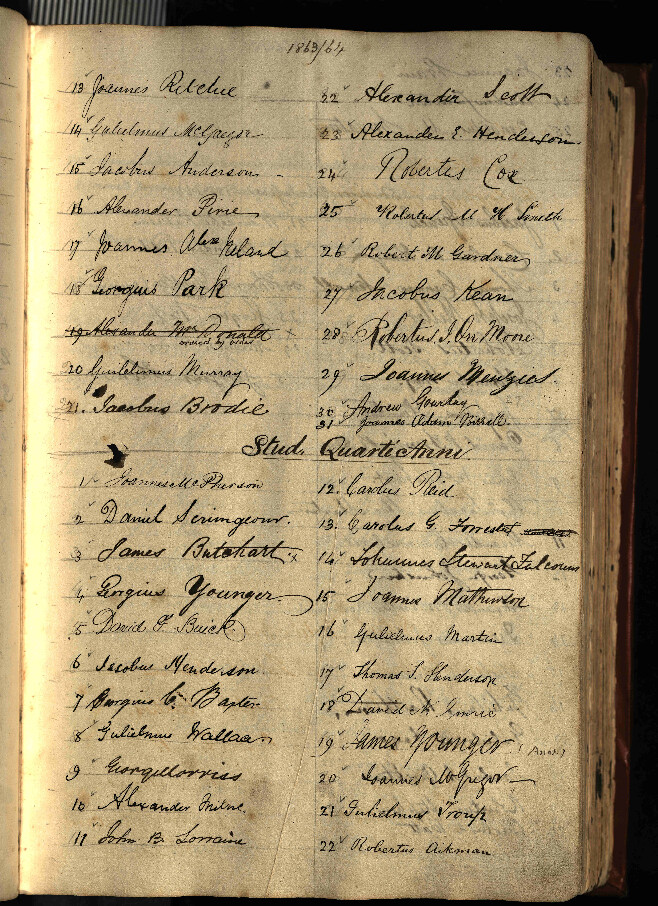 1863/64
13 Joannes Ritchie
14 Gulielmus McGregor
15 Jacobus Anderson
16 Alexander Pirie
17 Joannes Alexr Ireland
18 Georgius Park
19 Alexander Mc Donald
erased by order
20 Guilielmus Murray
21. Jacobus Brodie
22 Alexander Scott
23 Alexander E. Henderson
24 Robertus Cox
25 Robertus M. H. Smith
26 Robert M. Gardner
27 Jacobus Kean
28 Robertus J. Moore
29 Joannes Menzies.
30 Andrew Gourlay
31 Joannes Adam Birrell
Stud. Quarti Anni
1 Joannes McPherson
2 Daniel Scrimgeour.
3 James Butchart x
4 Georgius Younger
5 David F. Buick
6 Jacobus Henderson
7 Georgius C. Baxter
8 Gulielmus Wallace
9 George Morriss
10 Alexander Milne
11 John B. Lorraine
12. Carolus Reid
13. Carolus G. Forrester
14 Johannes Stewart Falconer
15 Joannes Mathewson
16 Gulielmus Martin
17 Thomas S. Henderson
18 David M. Imrie
19 James Younger
20 Joannes McGregor
21 Gulielmus Troup
22 Robertus Aikman